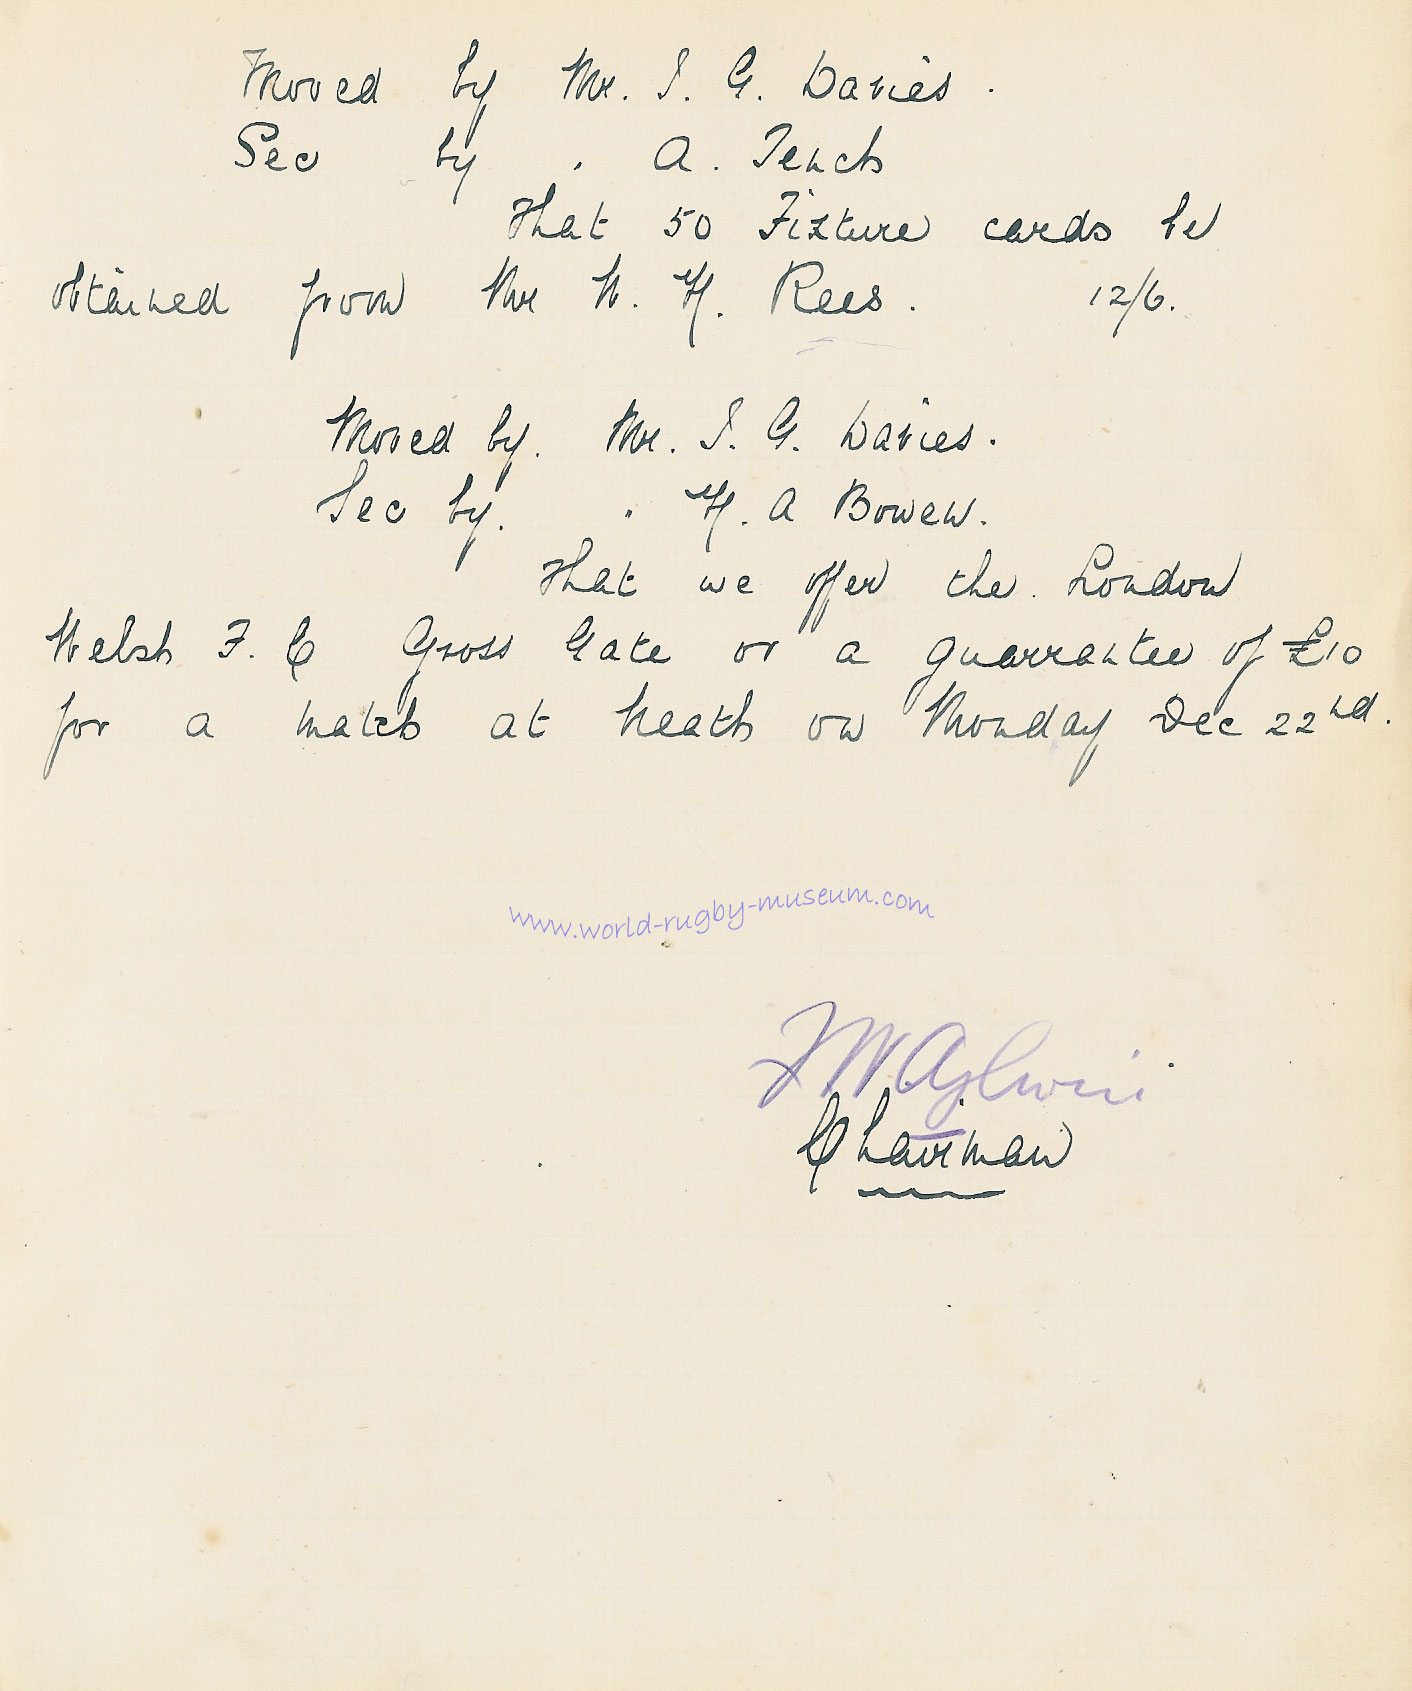 Moved by Mr. I. G. Davies.
Sec by " A. Tench
that 50 Fixture cards be
obtained from Mr W. H. Rees. 12/6.
Moved by. Mr. I. G. Davies.
Sec by. " H. A Bowen.
that we offer the London
Welsh F. C Gross Gate or a guarrantee of £10
for a match at Neath on Monday Dec 22nd.
www.world-rugby-museum.com
Chairman